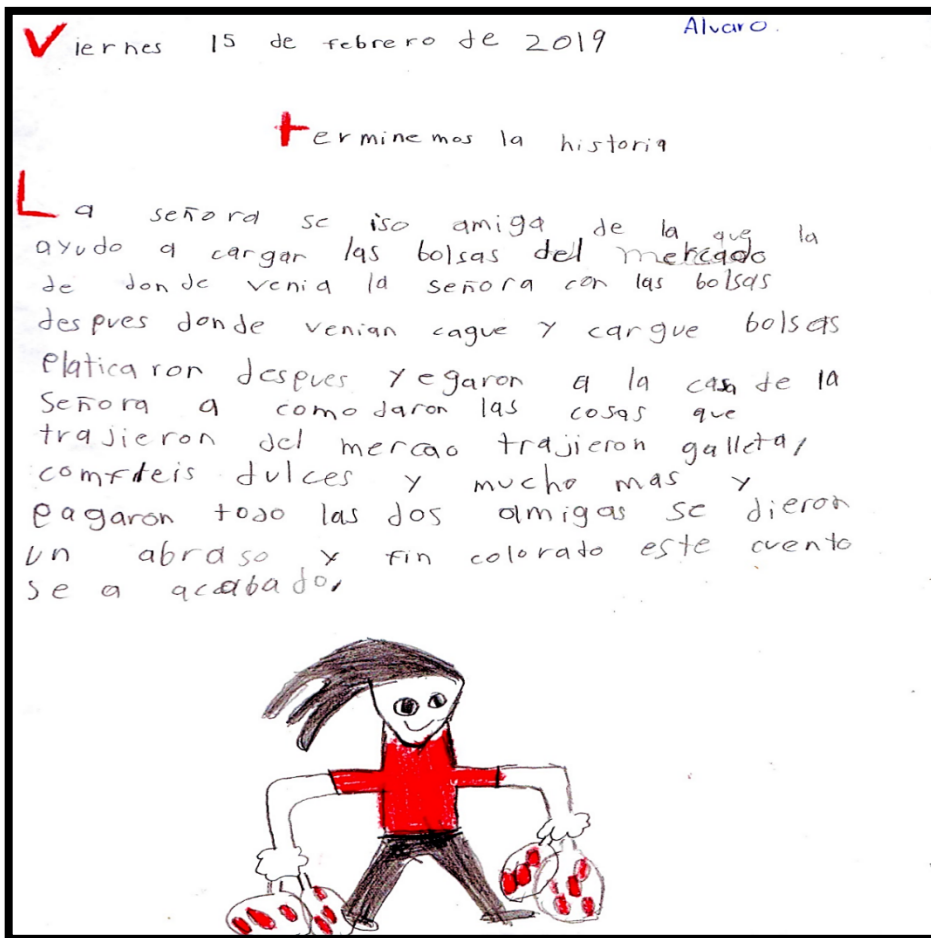 Viernes 15 de febrero de 2019 Alvaro.
terminemos la historia
La señora se iso amiga de la que la
ayudo a cargar las bolsas del mercado
de donde venia la señora con las bolsas
despues donde venian cague y cargue bolsas
platicaron despues yegaron a la casa de la
Señora a comodaron las cosas que
trajieron del mercao trajieron galleta,
comfteis dulces y mucho mas y
pagaron todo las dos amigas se dieron
un abraso y fin colorado este cuento
se a acabado,